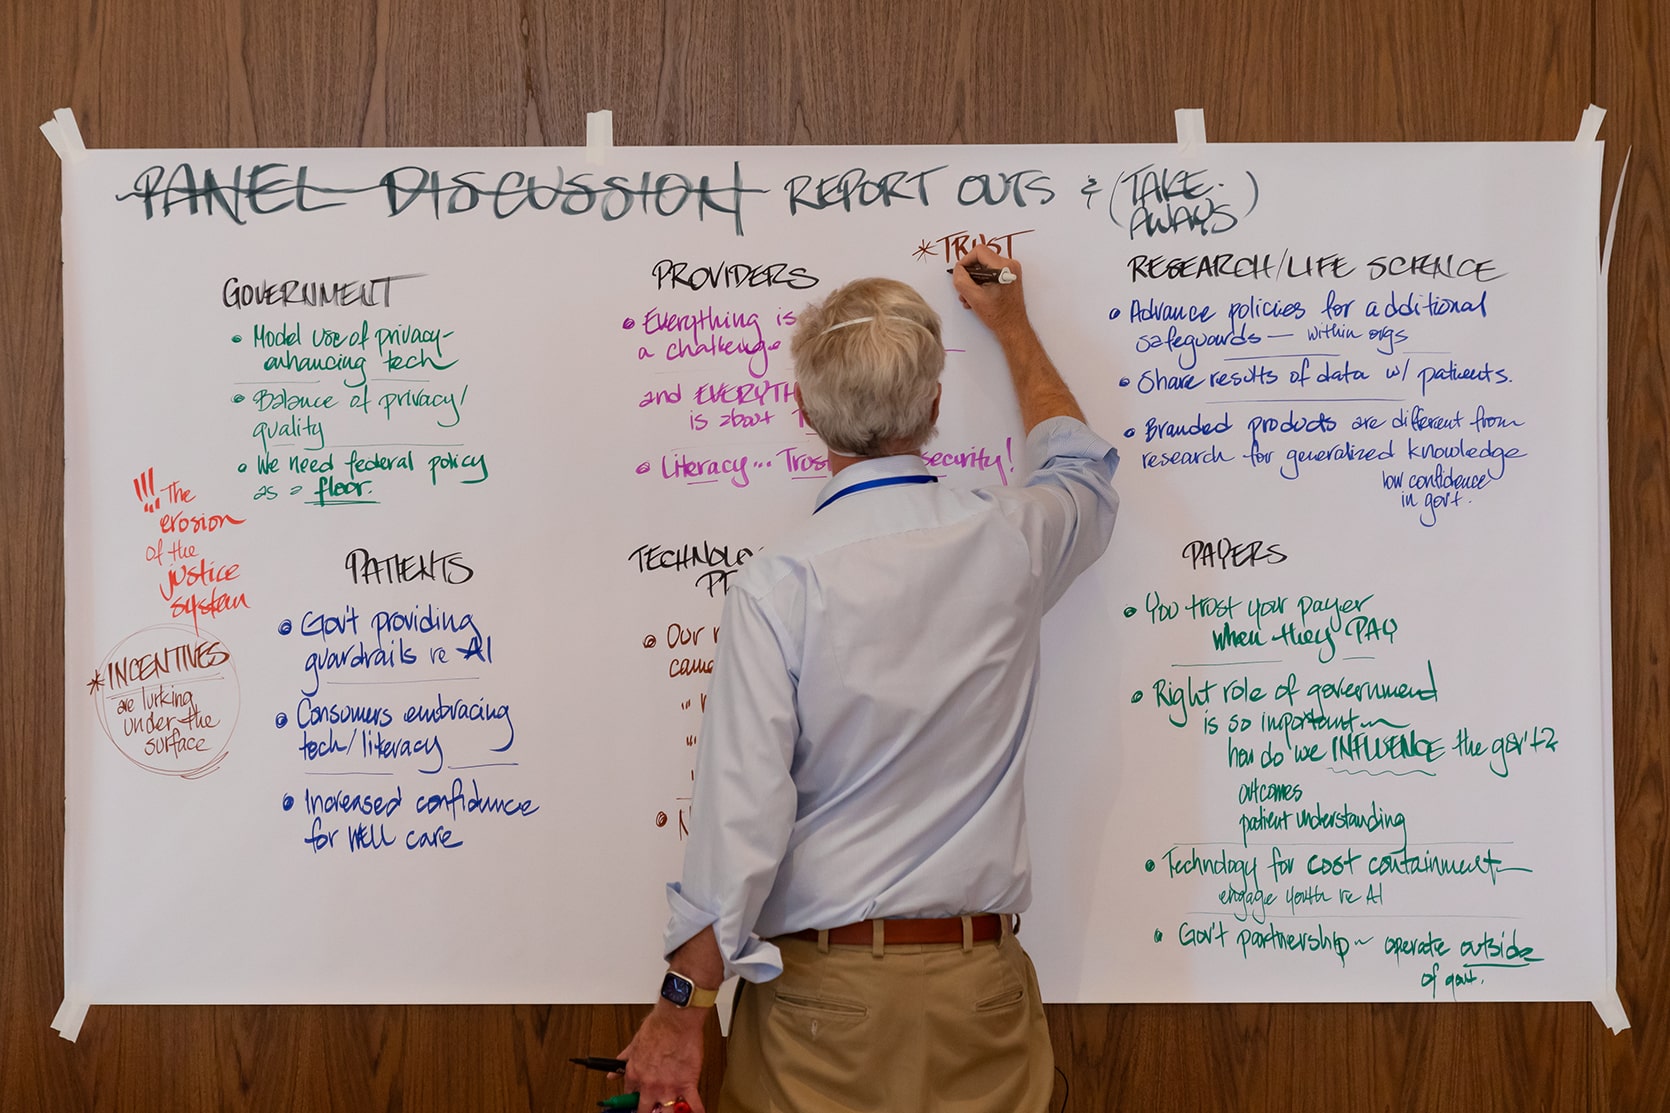 PANEL DISCUSSION REPORT OUTS & (TAKE-
AWAYS)
GOVERNMENT
• Model use of privacy-
enhancing tech
• Balance of privacy/
quality
• We need federal policy
as a floor.
!!! The
erosion
of the
justice
system
* INCENTIVES
are lurking
under the
surface
PATIENTS
• Gov't providing
guardrails re AI
• Consumers embracing
tech/literacy
• Increased confidence
for WELL care
PROVIDERS
* TRUST
• Everything is
a challenge
and
is about
• Literacy...
security!
• Our
came
RESEARCH/LIFE SCIENCE
• Advance policies for additional
safeguards — within orgs
• Share results of data w/ patients.
• Branded products are different from
research for generalized knowledge
low confidence
in gov't.
PAYERS
• You trust your payer
when they PAY
• Right role of government
is so important —
how do we INFLUENCE the gov't?
outcomes
patient understanding
• Technology for cost containment —
engage youth re AI
• Gov't partnership ~ operate outside
of gov't.